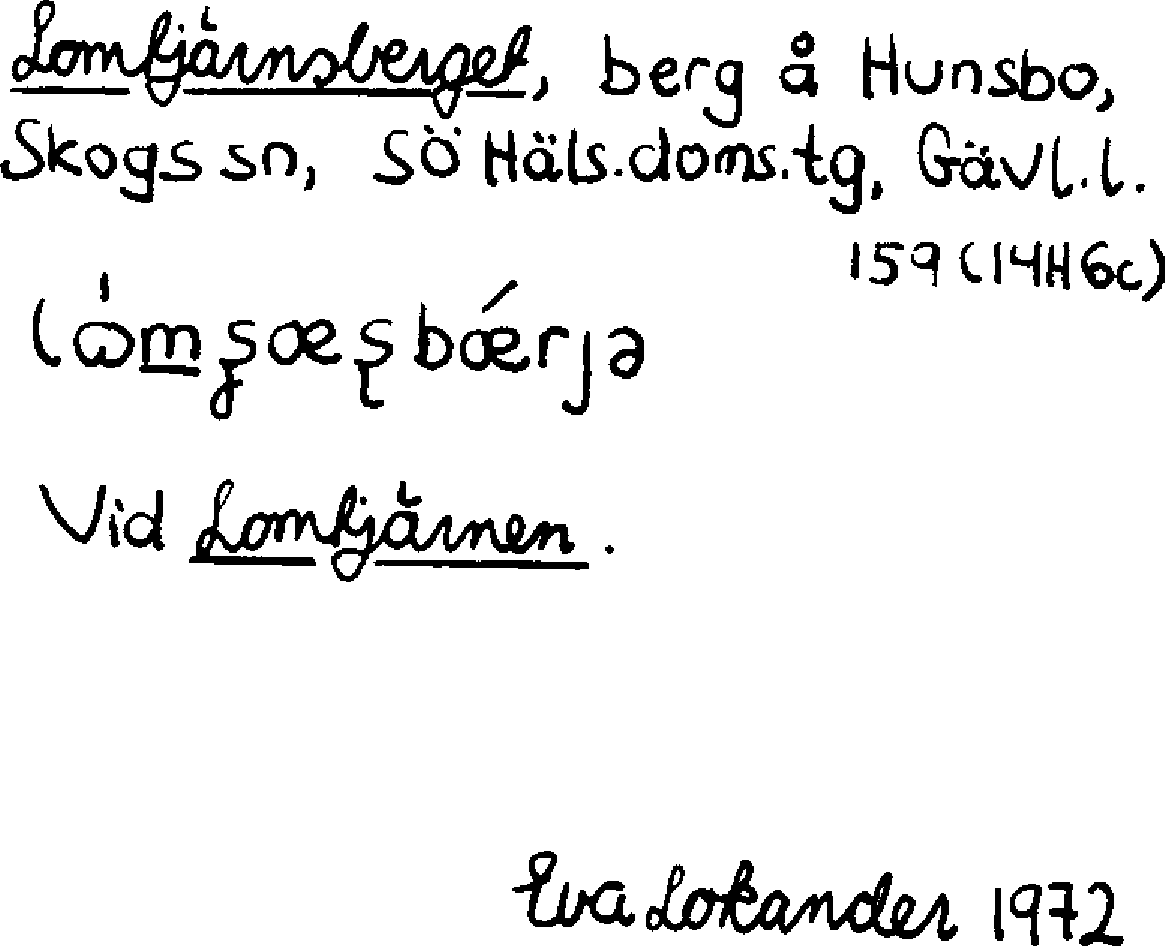 Lomtjärnsberget, berg å Hunsbo,
Skogs sn, SÖ Häls.doms.tg, Gävl.l.
159 (14H6c)
Vid Lomtjärnen.
Eva Lokander 1972